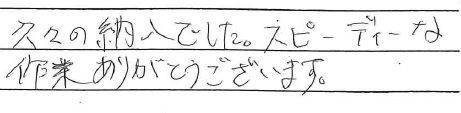 久々の納入でした。スピーディーな
作業ありがとうございます。